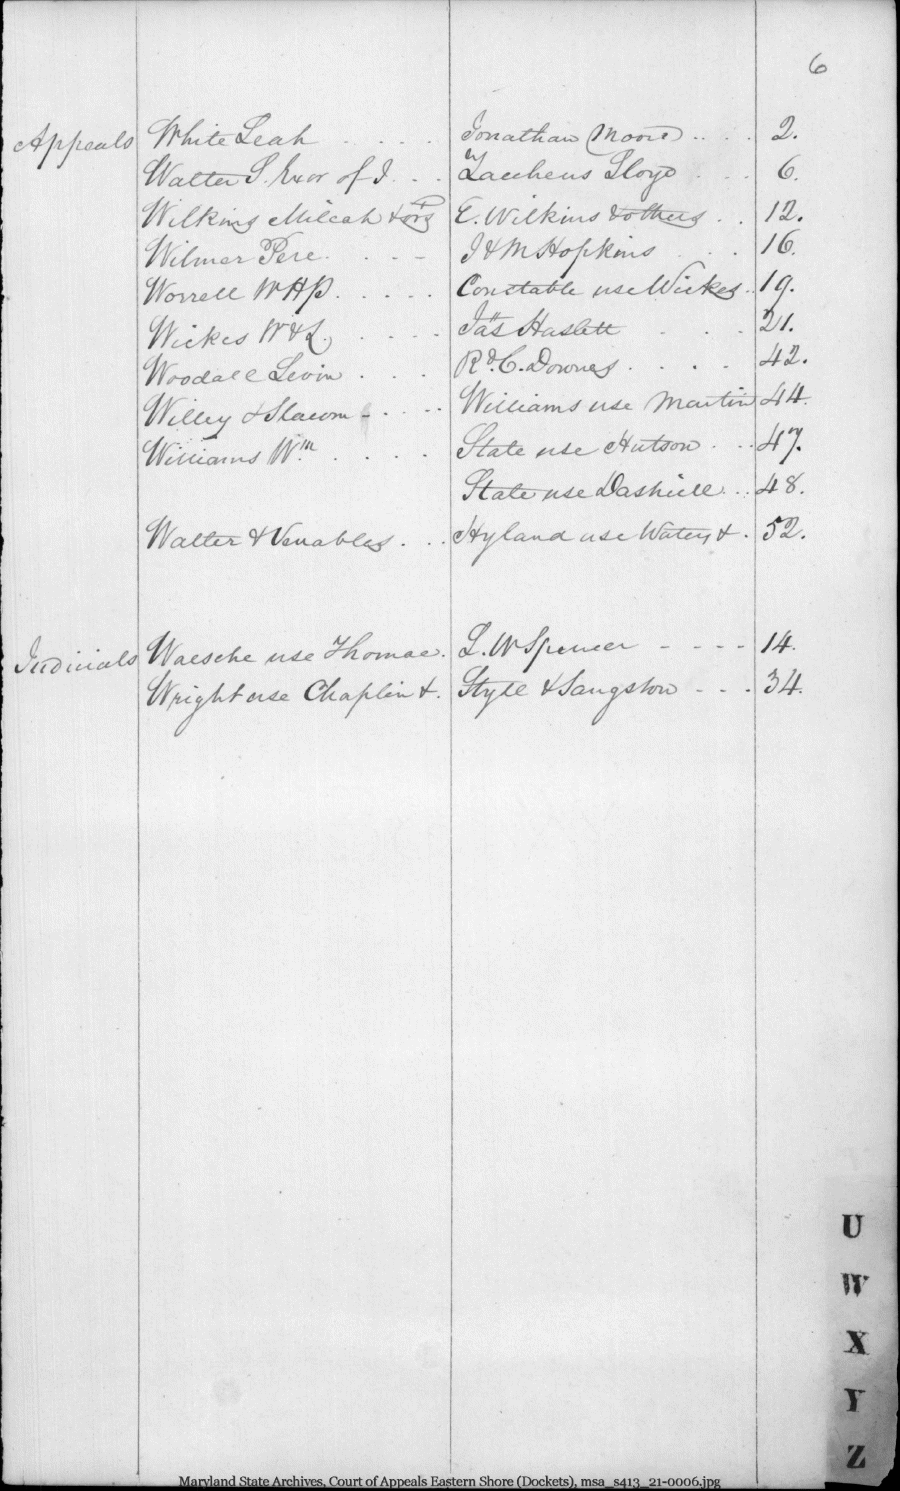 6
Appeals White Leah . . . . Jonathan Moore . . . . 2.
Walter S. Exor of J. . . Zaccheus Lloyd . . . 6.
Wilkins Milcah & ors E. Wilkins & others . . 12.
Wilmer Pere . . . - I & M Hopkins . . . 16.
Worrell W H P. . . . . Constable use Wickes . . 19.
Wickes W & L . . . . Jas Haslett . . . 21.
Woodall Levin . . . Rd. C. Downes . . . . 42.
Willey & Slacom - . . . . Williams use Martin 44.
Williams Wm . . . . State use Hutson . . . 47.
State use Dashiell . . . 48.
Walter & Venables . . . Hyland use Waters & . 52.
Judicials Waesche use Thomae . L. W Spencer - - - - 14.
Wright use Chaplin & . Style & Sangston - - . 34.
U
W
X
Y
Z
Maryland State Archives, Court of Appeals Eastern Shore (Dockets), msa_s413_21-0006.jpg